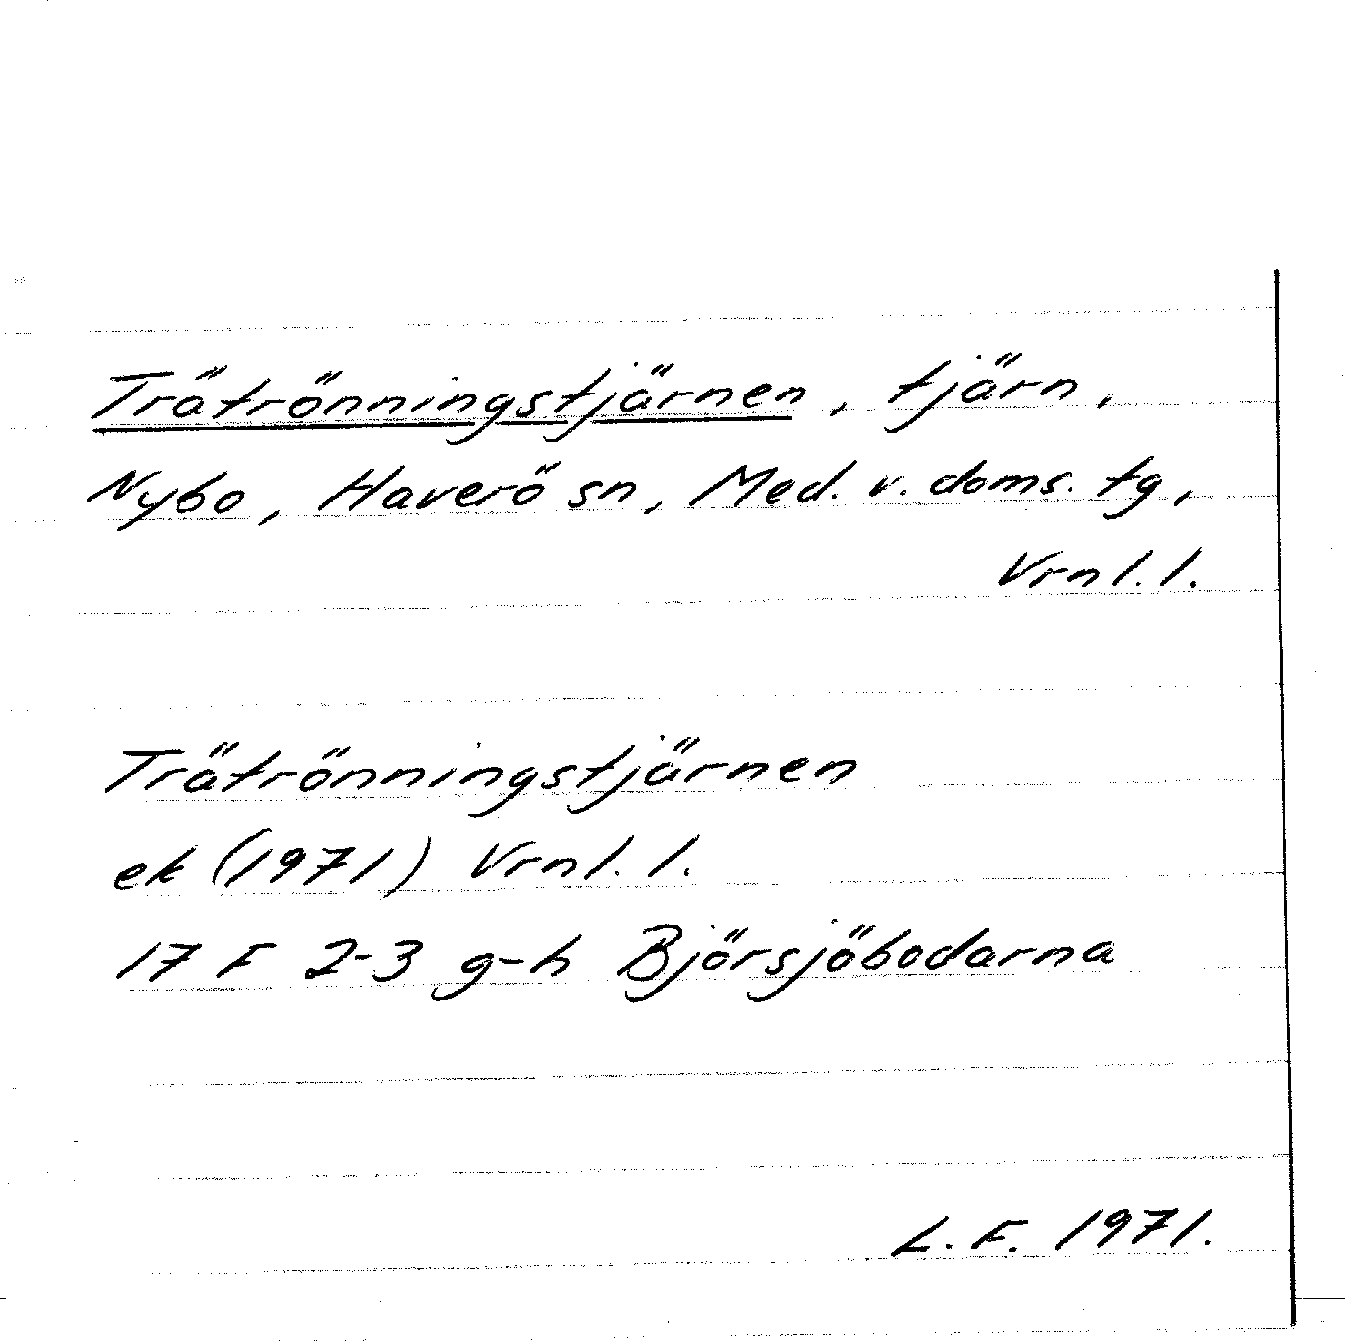 Trätrönningstjärnen, tjärn,
Nybo, Haverö sn, Med. v. doms. tg,
Vrnl. l.
Trätrönningstjärnen
ek (1971) Vrnl. l.
17 F 2-3 g-h Björsjöbodarna
L. F. 1971.